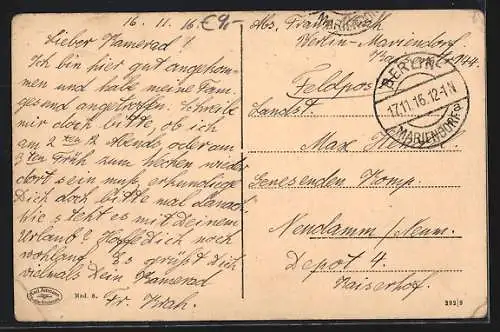 16. 11. 16. €9,-
Lieber Kamerad!
Ich bin hier gut angekom-
men und habe meine Fam.
gesund angetroffen. Schreibe
mir doch bitte, ob ich
am 2ten 12 Abends, oder am
3ten Früh zum Wecken wieder
dort sein muß, erkundige
Dich doch bitte mal danach.
Wie steht es mit Deinem
Urlaub? Hoffe Dich noch
wohlauf. Es grüßt Dich
vielmals Dein Kamerad
Fr. Krah.
Mrd. 8.
Abs. Frau
Berlin-Mariendorf
Feldpost
BERLIN
17.11.16. 12-1N
MARIENDORF a
Landst.
Max
Genesenden Komp.
Neudamm / Neum.
Depot 4.
Kaiserhof.